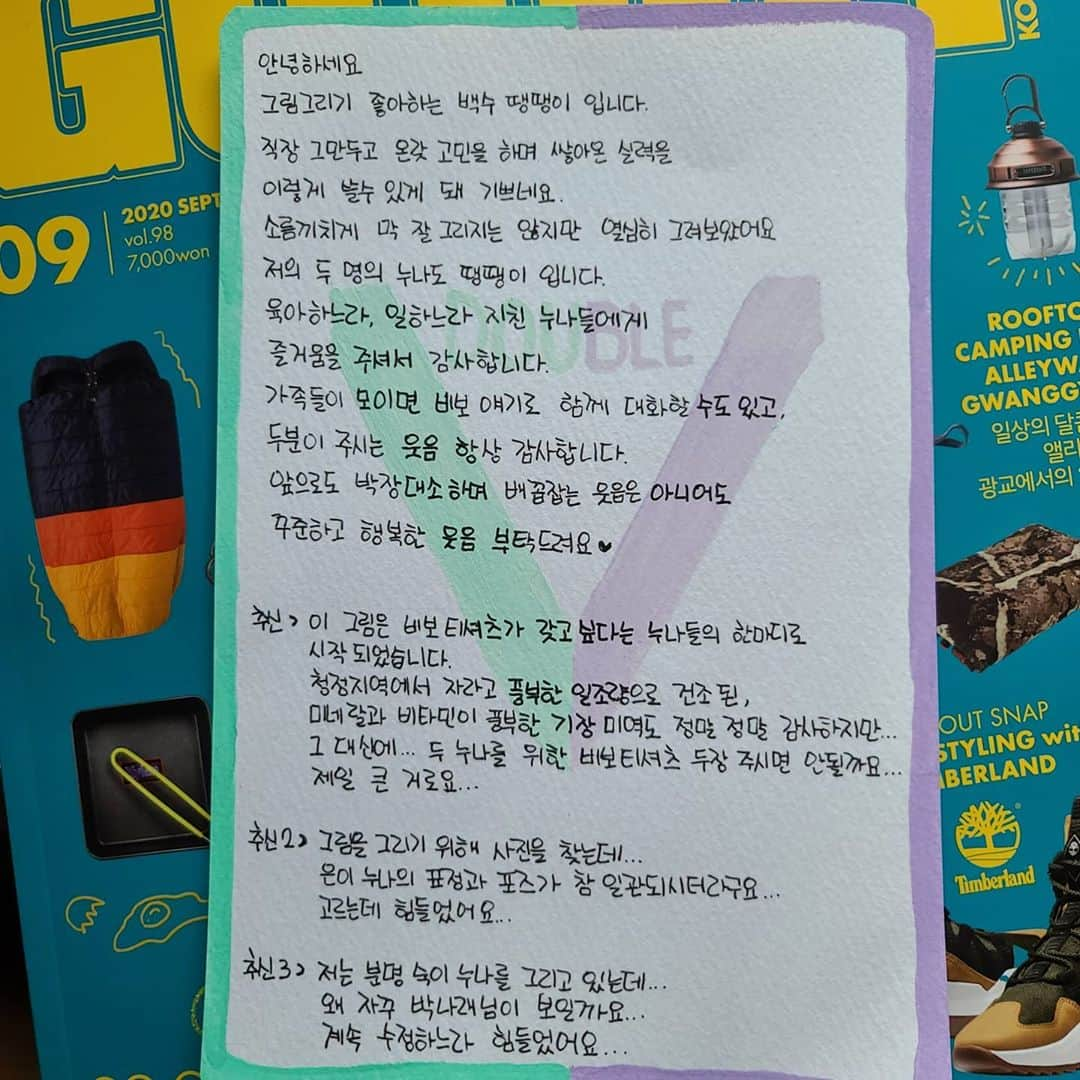 안녕하세요
그림그리기 좋아하는 백수 땡땡이 입니다.
직장 그만두고 온갖 고민을 하며 쌓아온 실력을
이렇게 쓸수 있게 돼 기쁘네요.
소름끼치게 막 잘 그리지는 않지만 열심히 그려보았어요
저의 두 명의 누나도 땡땡이 입니다.
육아하느라, 일하느라 지친 누나들에게
즐거움을 주셔서 감사합니다.
가족들이 모이면 비보 얘기로 함께 대화할 수도 있고,
두분이 주시는 웃음 항상 감사합니다.
앞으로도 박장대소하며 배꼽잡는 웃음은 아니어도
꾸준하고 행복한 웃음 부탁드려요♥
DOUBLE
V
추신> 이 그림은 비보티셔츠가 갖고 싶다는 누나들의 한마디로
시작되었습니다.
청정지역에서 자라고 풍부한 일조량으로 건조 된,
미네랄과 비타민이 풍부한 기장 미역도 정말 정말 감사하지만...
그 대신에... 두 누나를 위한 비보티셔츠 두장 주시면 안될까요...
제일 큰 거로요...
추신2> 그림을 그리기 위해 사진을 찾는데...
은이 누나의 표정과 포즈가 참 일관되시더라구요...
고르는데 힘들었어요...
추신3> 저는 분명 숙이 누나를 그리고 있는데...
왜 자꾸 박나래님이 보일까요...
계속 수정하느라 힘들었어요...
09
2020 SEPT
vol.98
7,000won
KO
ROOFTO
CAMPING
ALLEYWA
GWANGG
일상의 달콤
앨리
광교에서의
OUT SNAP
STYLING wit
MBERLAND
Timberland